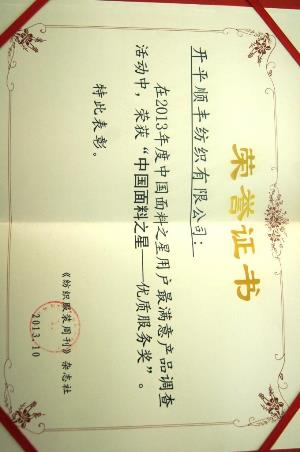 荣誉证书
开平顺丰纺织有限公司：
在2013年度中国面料之星用户最满意产品调查
活动中，荣获“中国面料之星——优质服务奖”。
特此表彰。
《纺织服装周刊》杂志社
2013.10